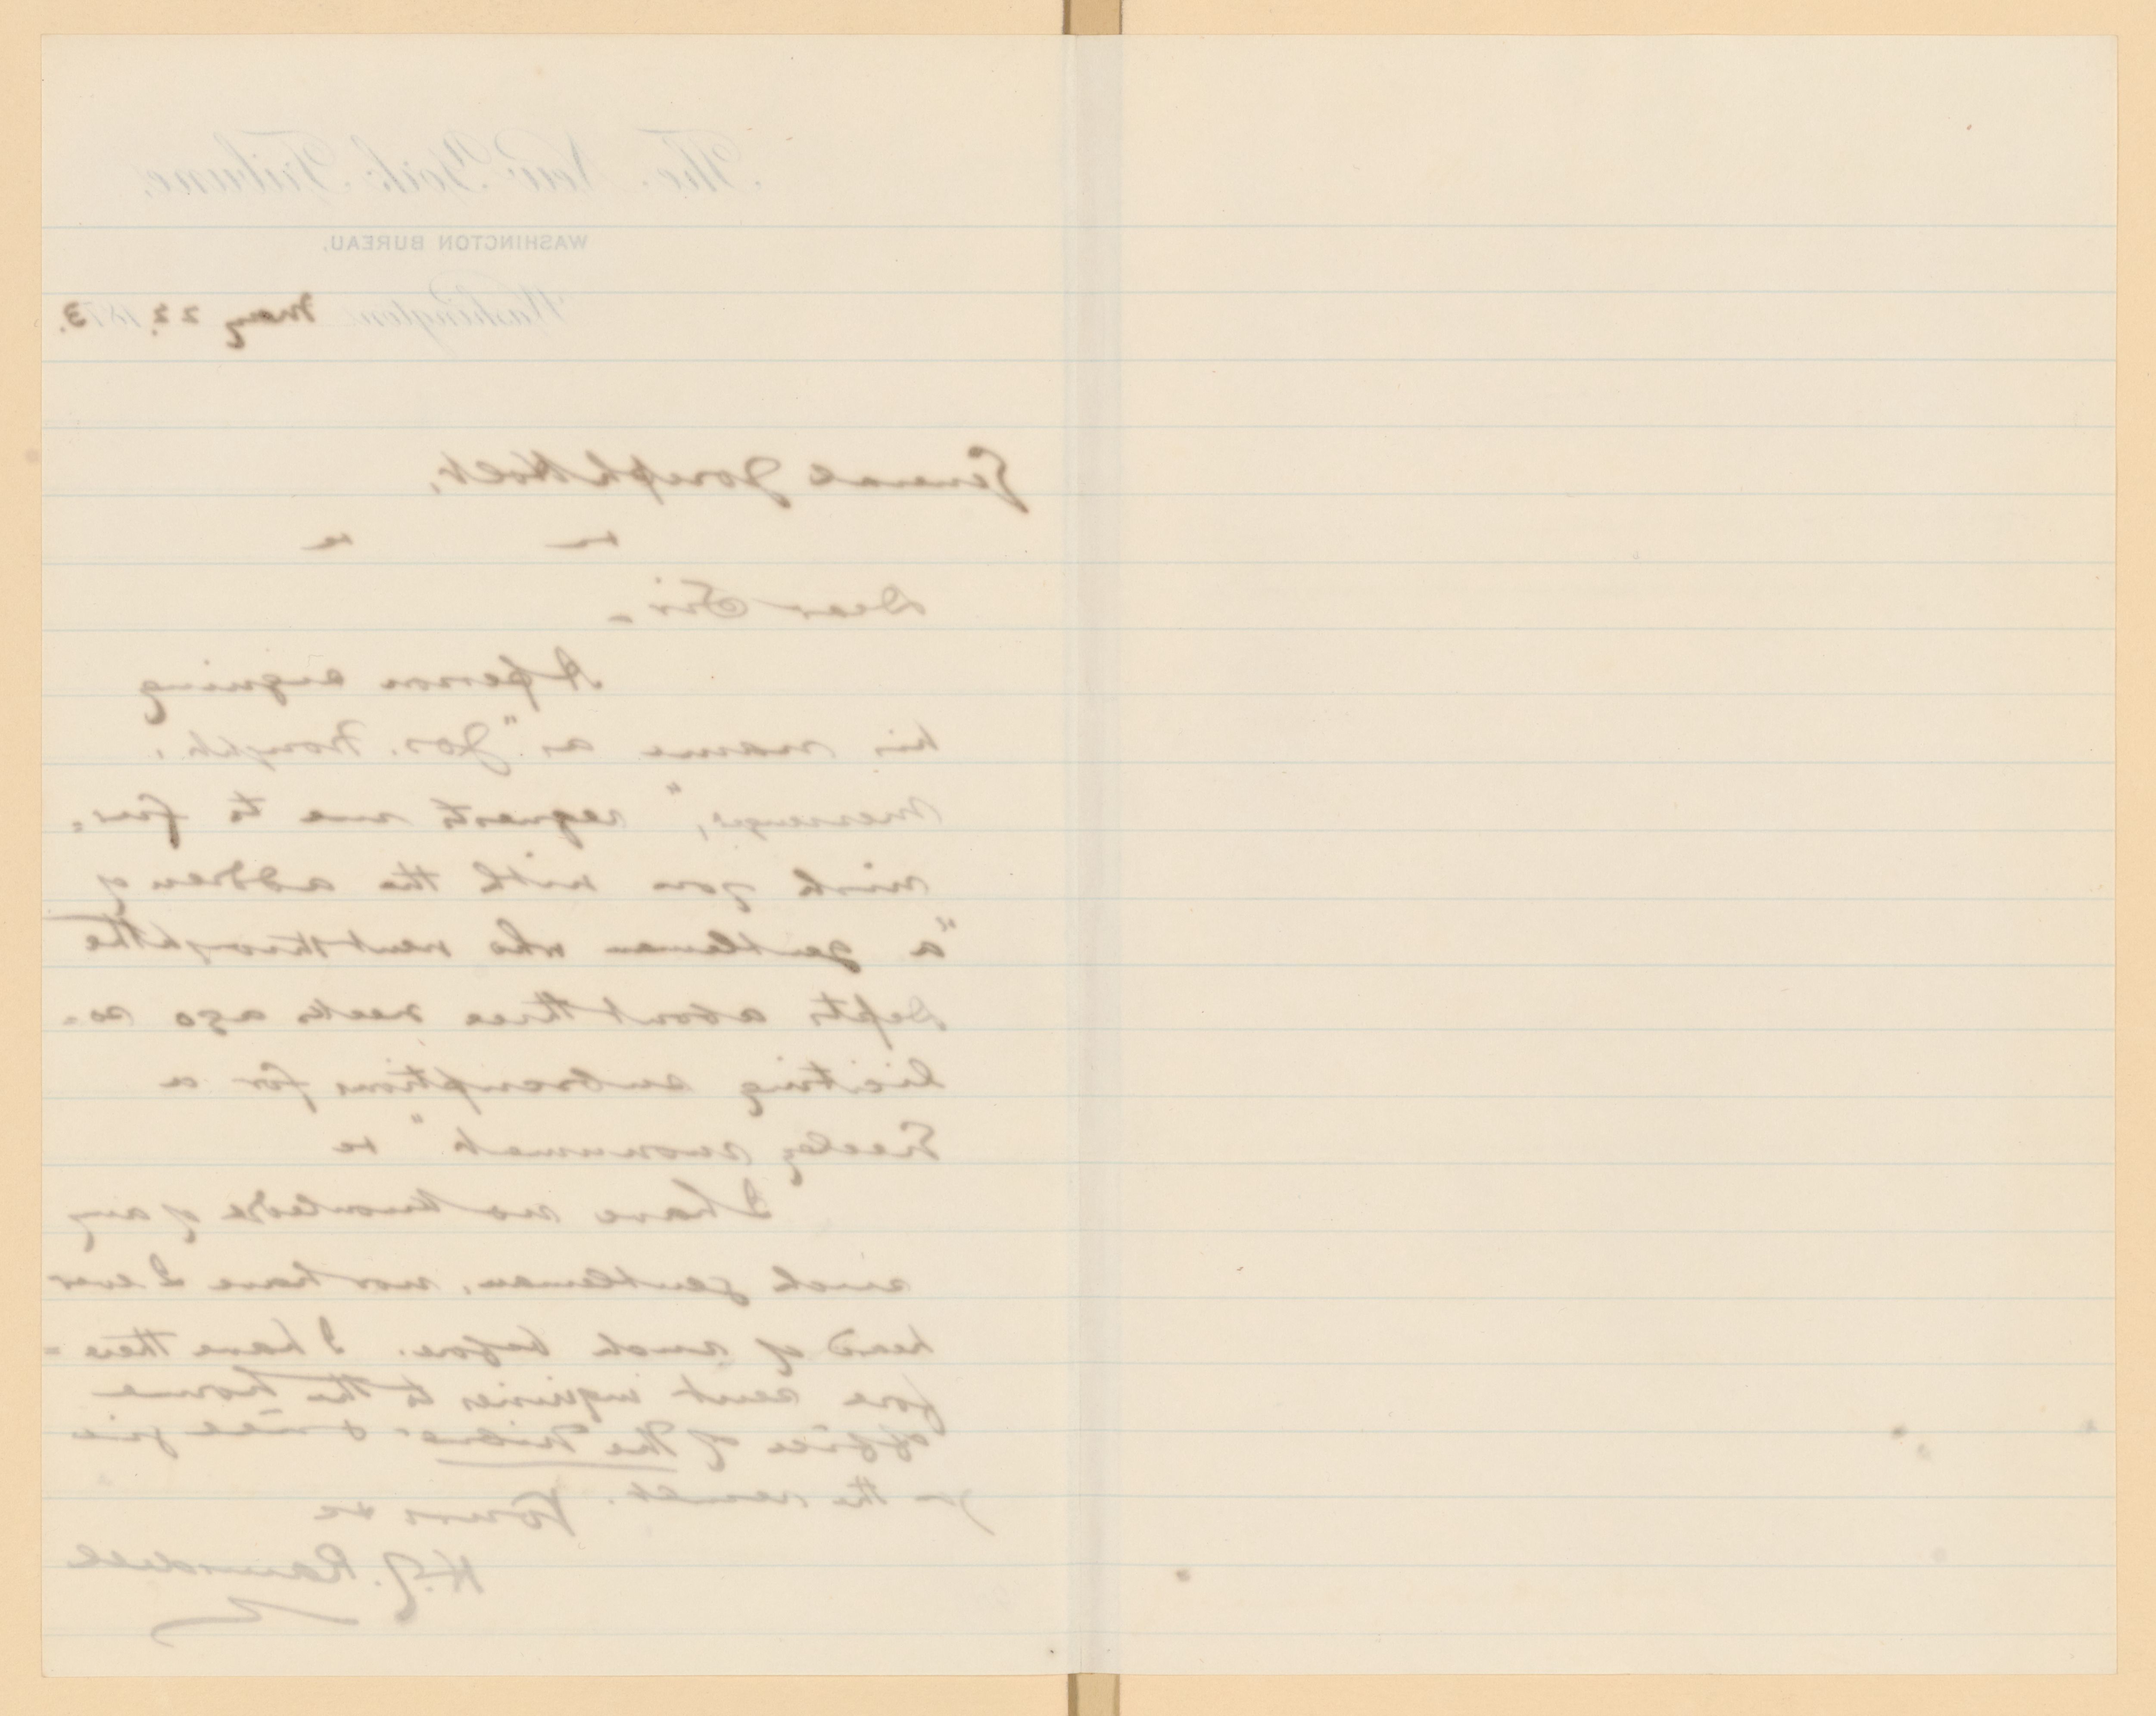 The New York Tribune,
WASHINGTON BUREAU,
Washington May 22, 1873.
General Joseph Holt,
&c &c
Dear Sir -
A person signing
his name as "Jos.
Messenger," requests me to fur-
nish you with the address of
"a gentleman who went through the
Depts about three weeks ago so-
liciting subscriptions for a
Greeley monument" &c
I have no knowledge of any
such gentleman, nor have I ever
heard of such before. I have there-
fore sent inquiries to the home
office of The Tribune & will give
you the result.
Yours &c
H. J. Ramsdell